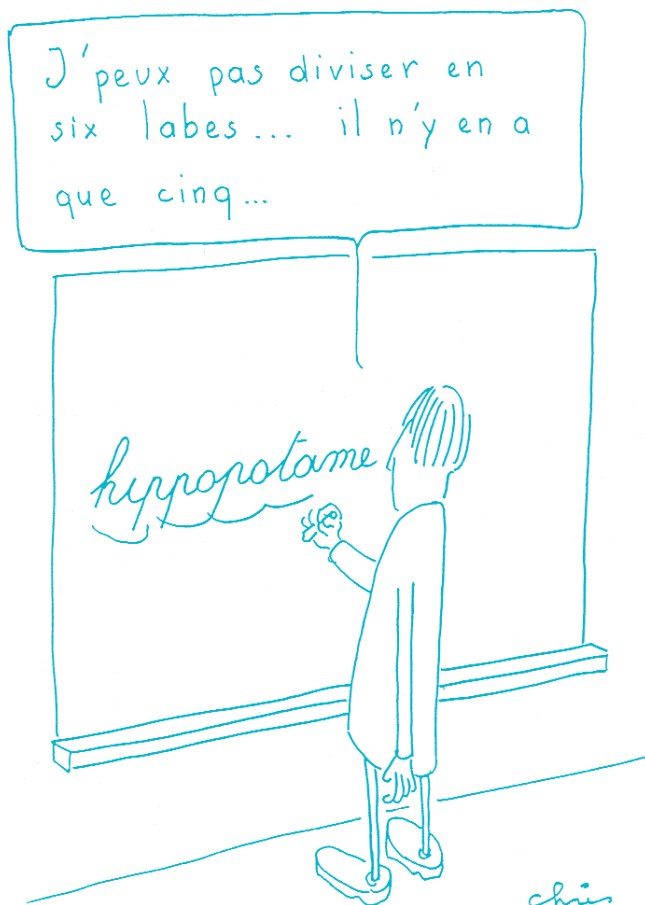 J'peux pas diviser en
six labes... il n'y en a
que cinq...
hyppopotame
chris